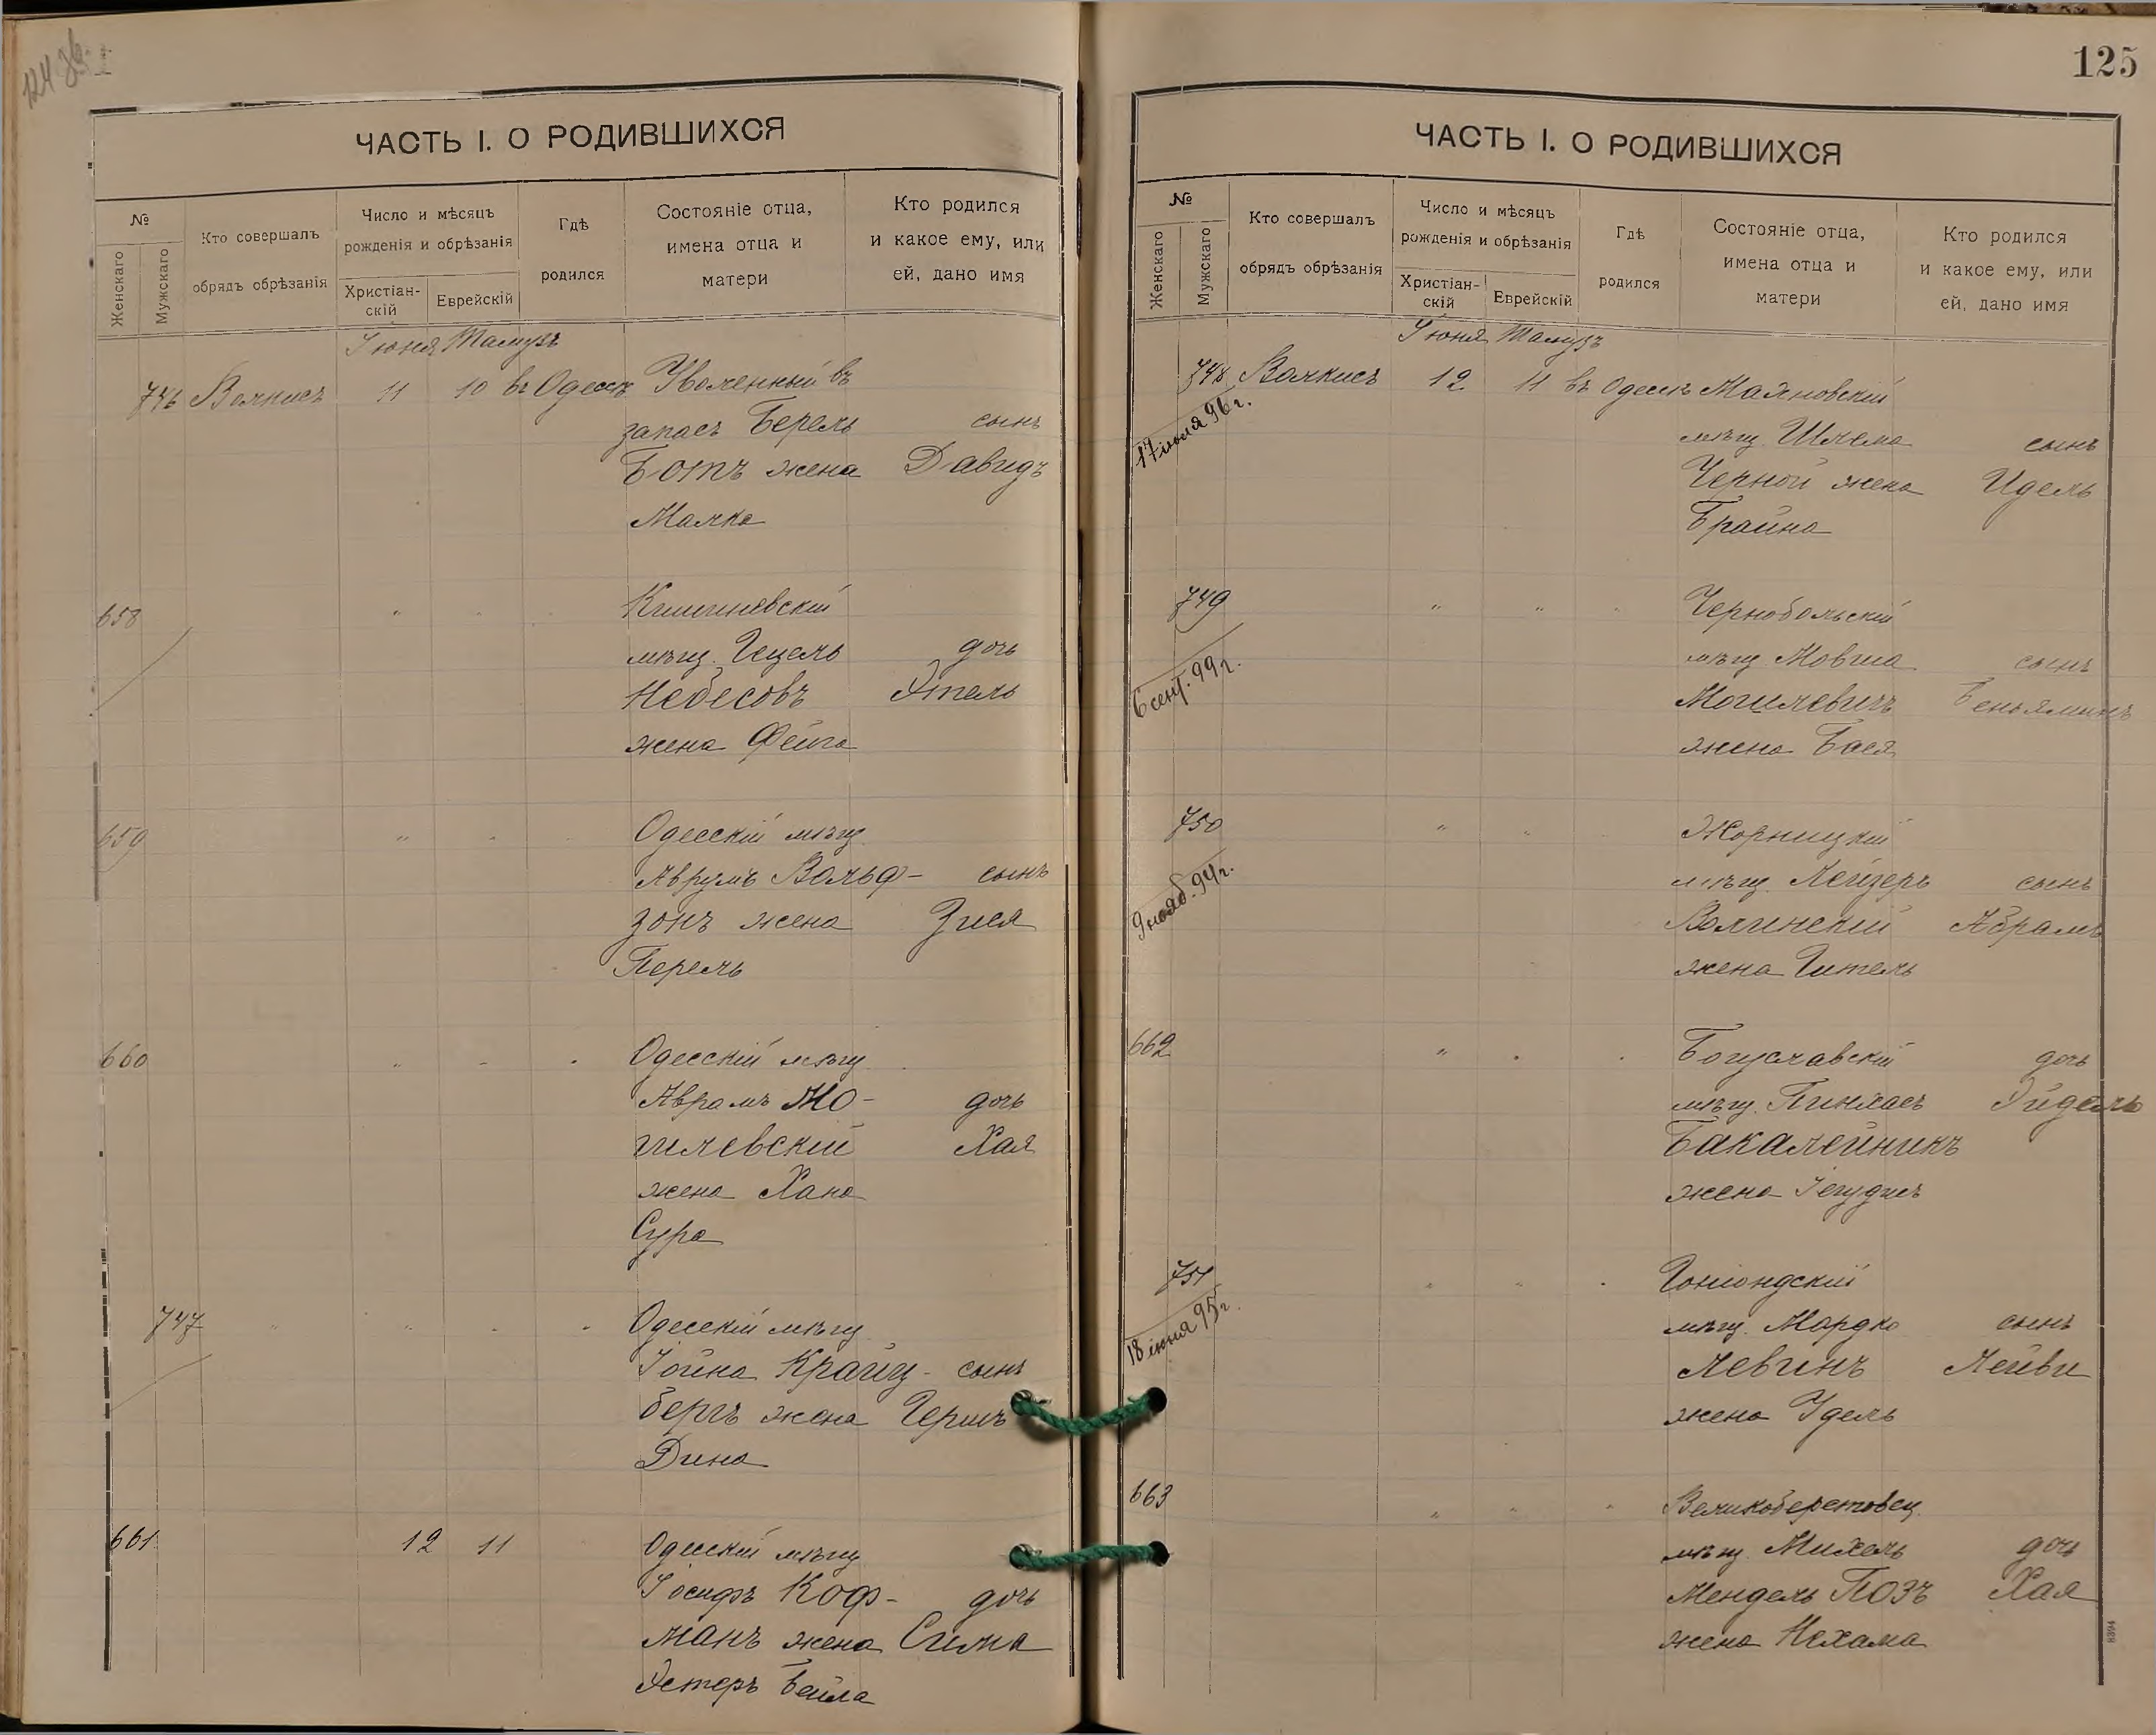 ЧАСТЬ I. О РОДИВШИХСЯ
№
Женскаго
Мужскаго
Кто совершалъ
обрядъ обрѣзанія
Число и мѣсяцъ
рожденія и обрѣзанія
Христіан-
скій
Еврейскій
Гдѣ
родился
Состояніе отца,
имена отца и
матери
Кто родился
и какое ему, или
ей, дано имя
Іюня Тамузъ
746 Велкисъ 11 10 въ Одессѣ Уволенный въ
запасъ Берель сынъ
Ботъ жена Давидъ
Малка
658 " " Кишиневскій
мѣщ. Гецель дочь
Небесовъ Этель
жена Фейга
659 " " Одесскій мѣщ.
Аврумъ Вольф- сынъ
зонъ жена Зися
Перель
660 " " " Одесскій мѣщ.
Аврамъ Мо- дочь
гилевскій Хая
жена Хана
Сура
747 " " " " Одесскій мѣщ.
Іойна Крайц- сынъ
бергъ жена Гершъ
Дина
661 12 11 Одесскій мѣщ.
Іосифъ Коф- дочь
манъ жена Сима
Эстеръ Бейла
125
ЧАСТЬ I. О РОДИВШИХСЯ
№
Женскаго
Мужскаго
Кто совершалъ
обрядъ обрѣзанія
Число и мѣсяцъ
рожденія и обрѣзанія
Христіан-
скій
Еврейскій
Гдѣ
родился
Состояніе отца,
имена отца и
матери
Кто родился
и какое ему, или
ей, дано имя
Іюня Тамузъ
748 Велкисъ 12 11 въ Одессѣ Маяновскій
17 іюля 96 г.
мѣщ. Шлема сынъ
Черной жена Идель
Брайна
749 " " " Чернобольскій
6 сент. 99 г.
мѣщ. Мовша сынъ
Могилевичъ Беньяминъ
жена Бася
750 " " Жорницкій
9 нояб. 94 г.
мѣщ. Лейзеръ сынъ
Волинскій Абрамъ
жена Гитель
662 " " " Богуславскій дочь
мѣщ. Пинхасъ Эйдель
Бакалейникъ
жена Іегудисъ
751 " " " Гоніондскій
18 іюня 95 г.
мѣщ. Мордко сынъ
Левинъ Лейви
жена Удель
663 " " " Великоберестовец.
мѣщ. Михель дочь
Мендель Позъ Хая
жена Нехама
8394